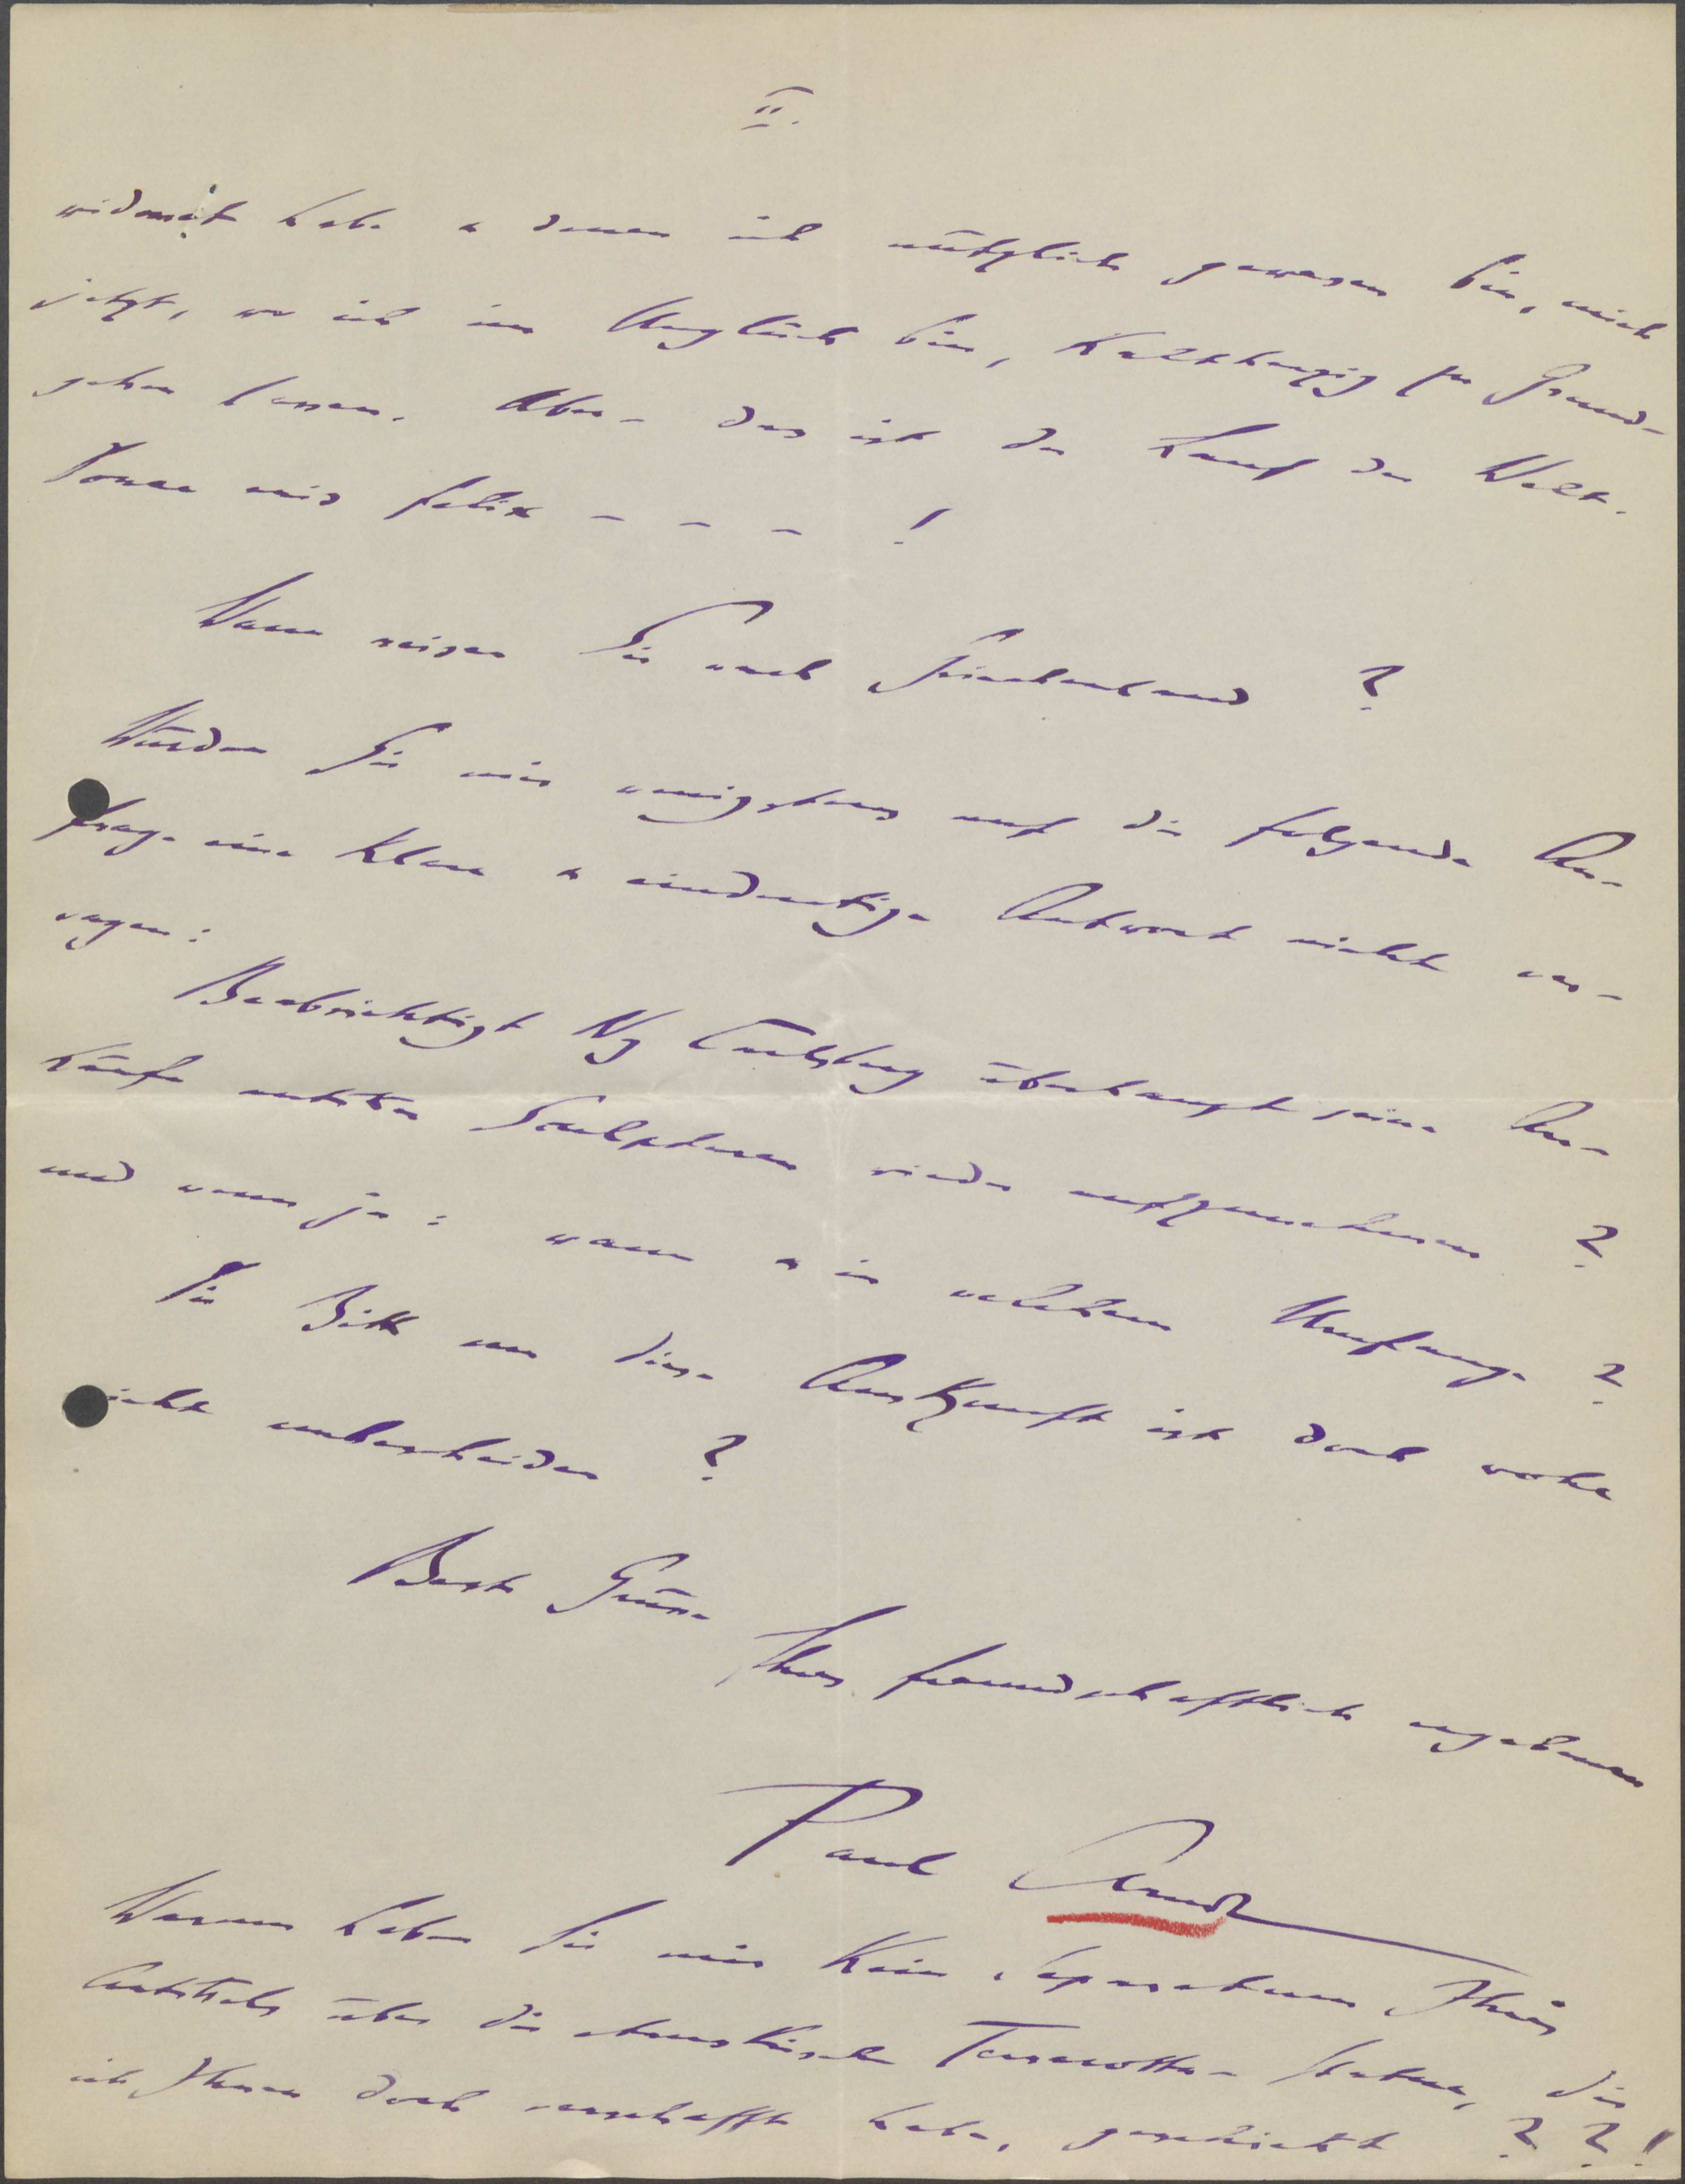 II.
widmet habe u denen ich nützlich gewesen bin, mich
jetzt, wo ich im Unglück bin, kaltherzig zu Grund-
gehen lassen. Aber das ist der Lauf der Welt.
Donec eris felix - - - !
Wann reisen Sie nach Griechenland ?
Würden Sie mir wenigstens auf die folgende An-
frage eine klare u eindeutige Antwort nicht ver-
sagen:
Beabsichtigt Ny Carlsberg überhaupt seine An-
käufe antiker Sculpturen wieder aufzunehmen ?
und wenn ja: wann u in welchem Umfange ?
Die Bitte um diese Auskunft ist doch wohl
nicht unbescheiden ?
Beste Grüsse
Ihres freundschaftlich ergebenen
Paul Arndt
Warum haben Sie mir kein Separatum Ihres
Artikels über die etruskische Terracotta-Statue, die
ich Ihnen doch verschafft habe, geschickt ? ? !